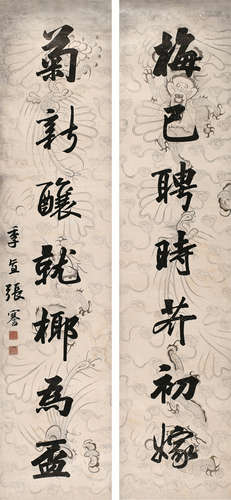 梅已聘時芥初嫁
菊新釀就椰為盃
季直張謇